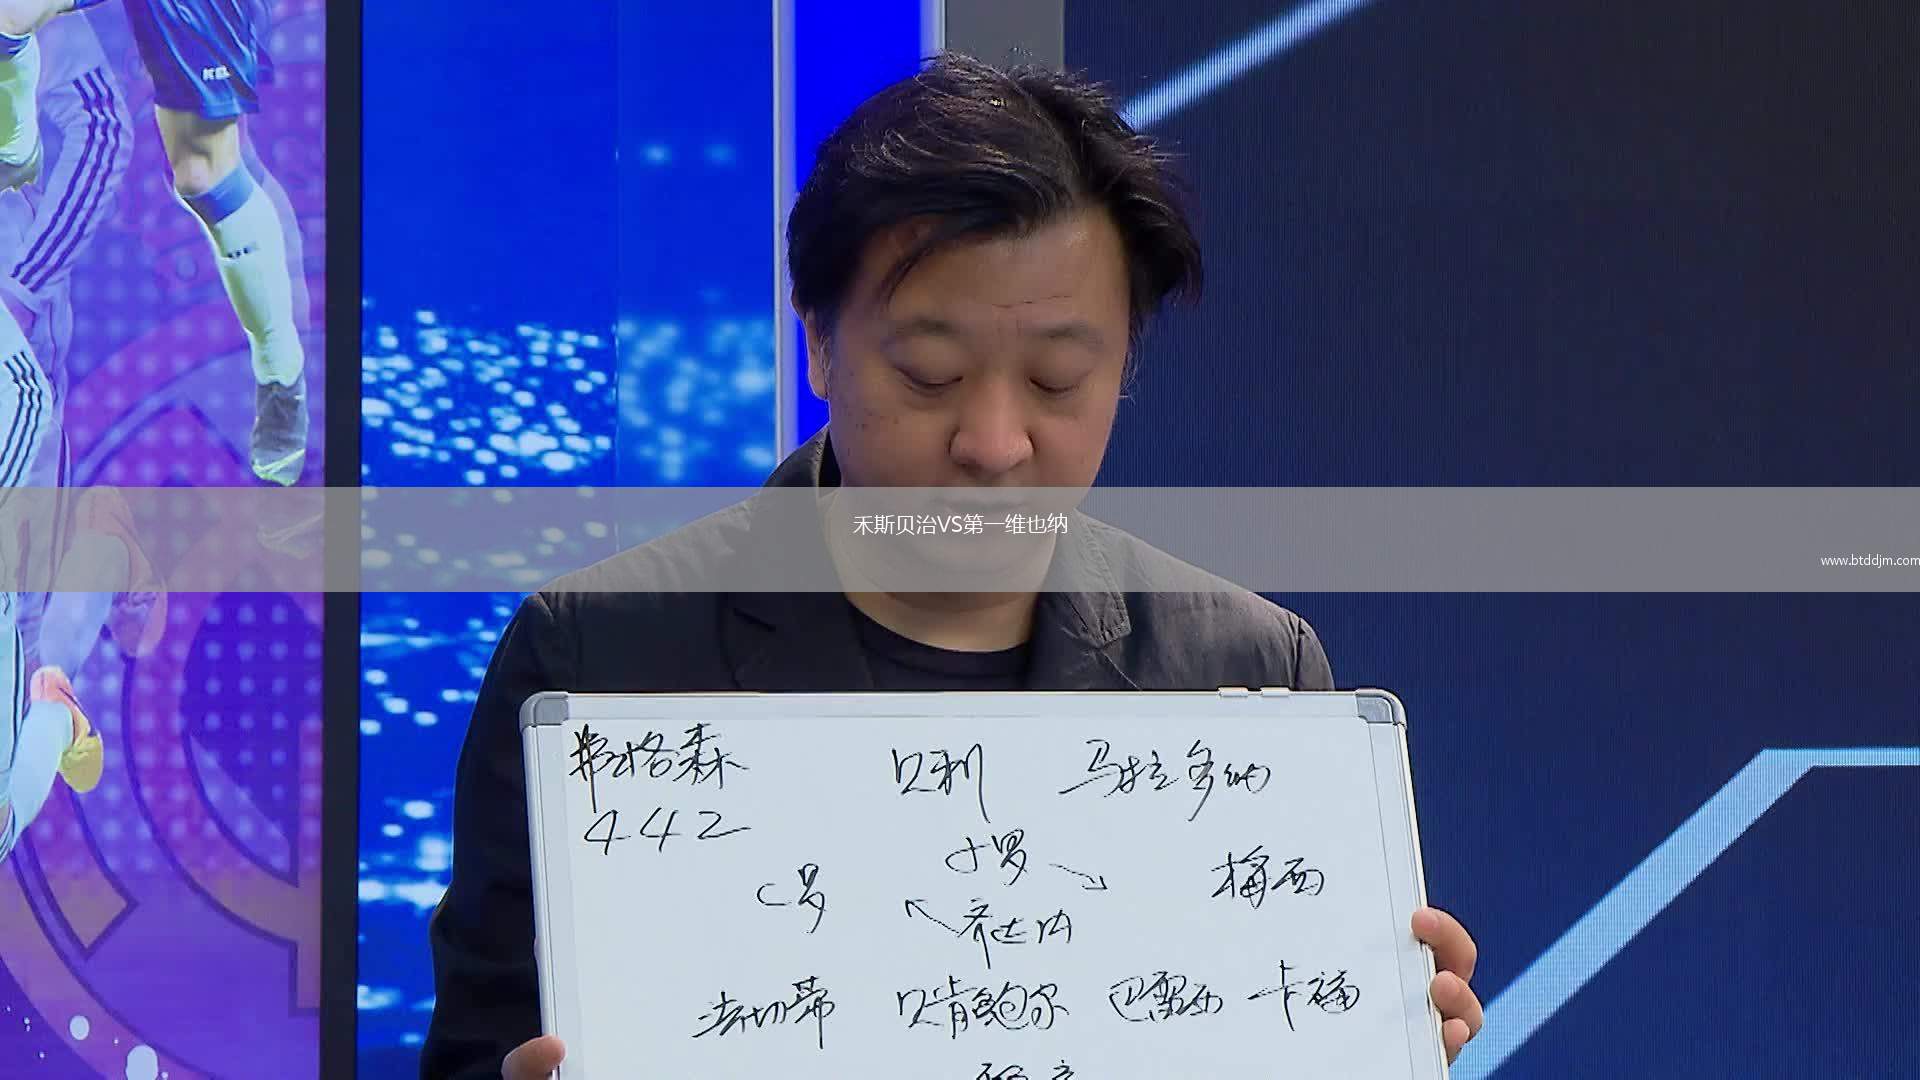 禾斯贝治VS第一维也纳
www.btddjm.com
弗格森 贝利 马拉多纳
442
小罗
C罗 梅西
齐达内
法切蒂 贝肯鲍尔 巴雷西 卡福